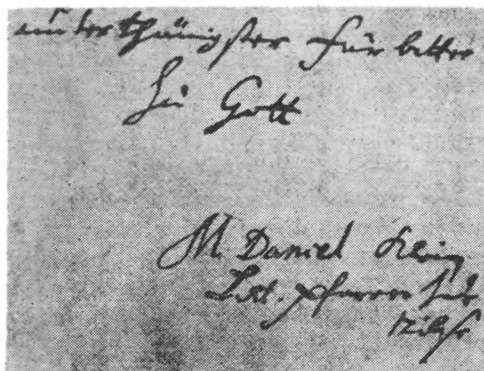 unterthänigster für bitter
Zu Gott
M. Daniel Klein
Litt. pfarrer zur
Tilse